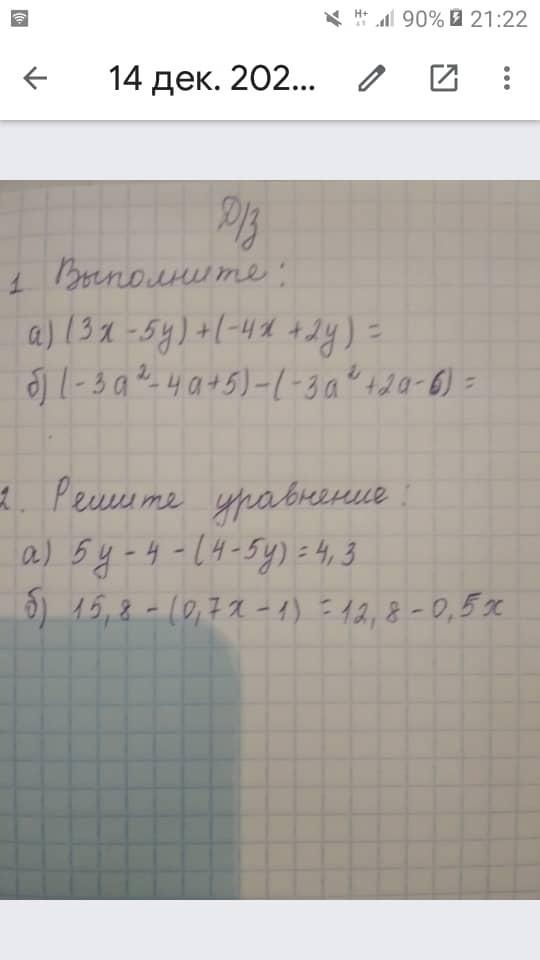 H+ 90% 21:22
14 дек. 202...
Д/З
1 Выполните:
а) (3x - 5y) + (-4x + 2y) =
б) (-3a² - 4a + 5) - (-3a² + 2a - 6) =
2. Решите уравнение:
а) 5y - 4 - (4 - 5y) = 4,3
б) 15,8 - (0,7x - 1) = 12,8 - 0,5x